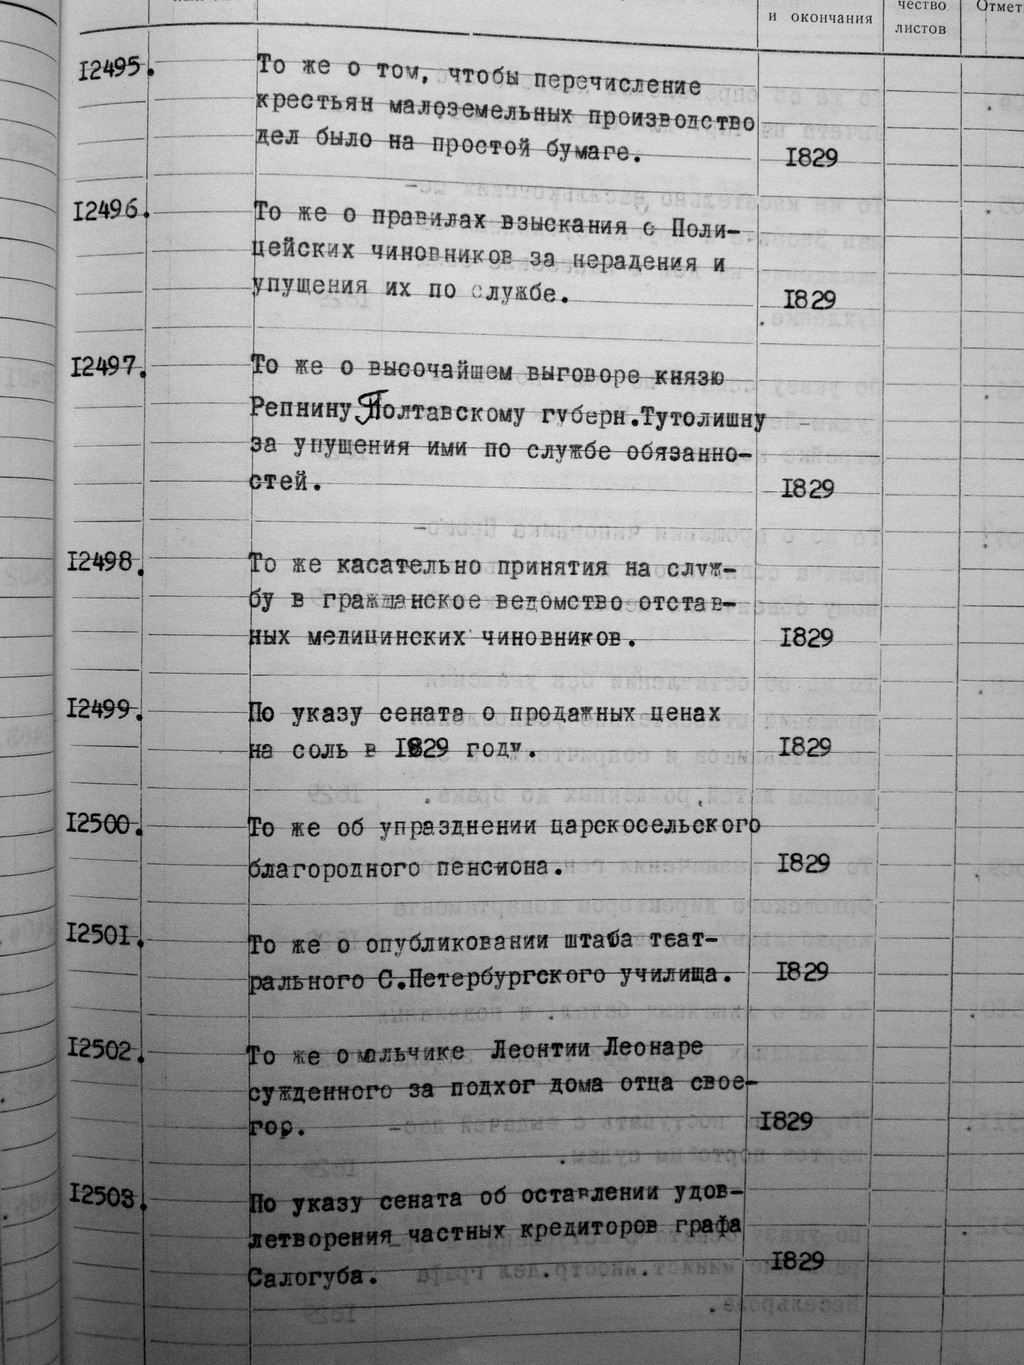 и окончания
чество
листов
Отмет
12495.
То же о том, чтобы перечисление
крестьян малоземельных производство
дел было на простой бумаге.
1829
12496.
То же о правилах взыскания с Поли-
цейских чиновников за нерадения и
упущения их по службе.
1829
12497.
То же о высочайшем выговоре князю
Репнину, Полтавскому губерн.Тутолишну
за упущения ими по службе обязанно-
стей.
1829
12498.
То же касательно принятия на служ-
бу в гражданское ведомство отстав-
ных медицинских чиновников.
1829
12499.
По указу сената о продажных ценах
на соль в 1829 году.
1829
12500.
То же об упразднении царскосельского
благородного пенсиона.
1829
12501.
То же о опубликовании штаба теат-
рального С.Петербургского училища.
1829
12502.
То же о мальчике Леонтии Леонаре
сужденного за подхог дома отца свое-
гор.
1829
12503.
По указу сената об оставлении удов-
летворения частных кредиторов графа
Салогуба.
1829